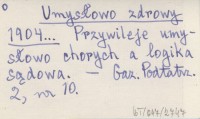 Umysłowo zdrowy
1904... Przywileje umy-
słowo chorych a logika
sądowa. — Gaz. Podtatrz.
2, nr 10.